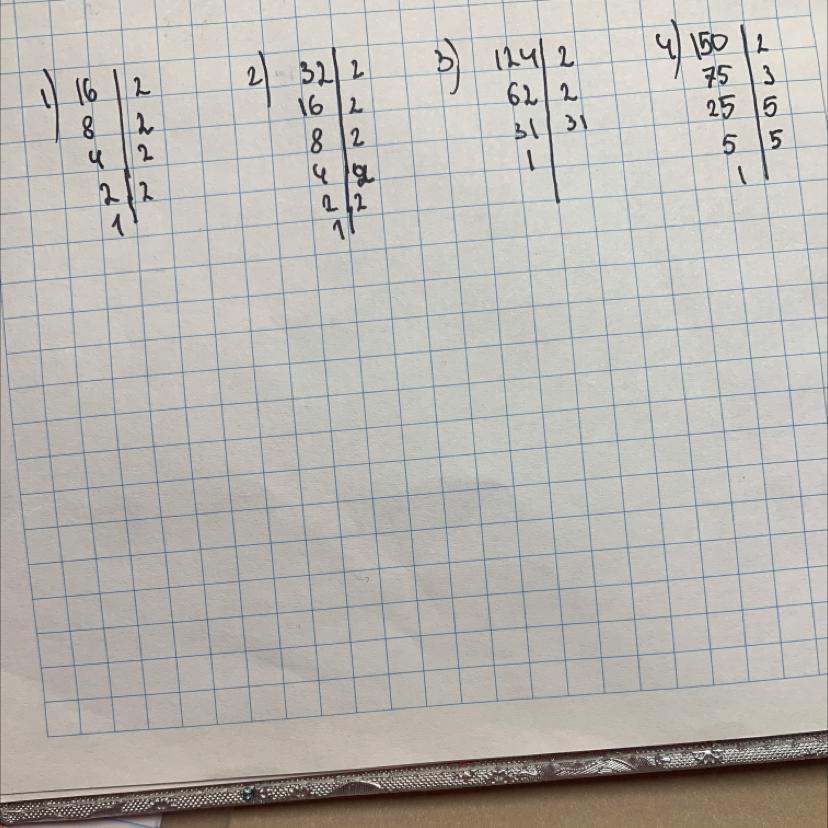 1) 16 | 2
8 | 2
4 | 2
2 | 2
1
2) 32 | 2
16 | 2
8 | 2
4 | 2
2 | 2
1
3) 124 | 2
62 | 2
31 | 31
1
4) 150 | 2
75 | 3
25 | 5
5 | 5
1